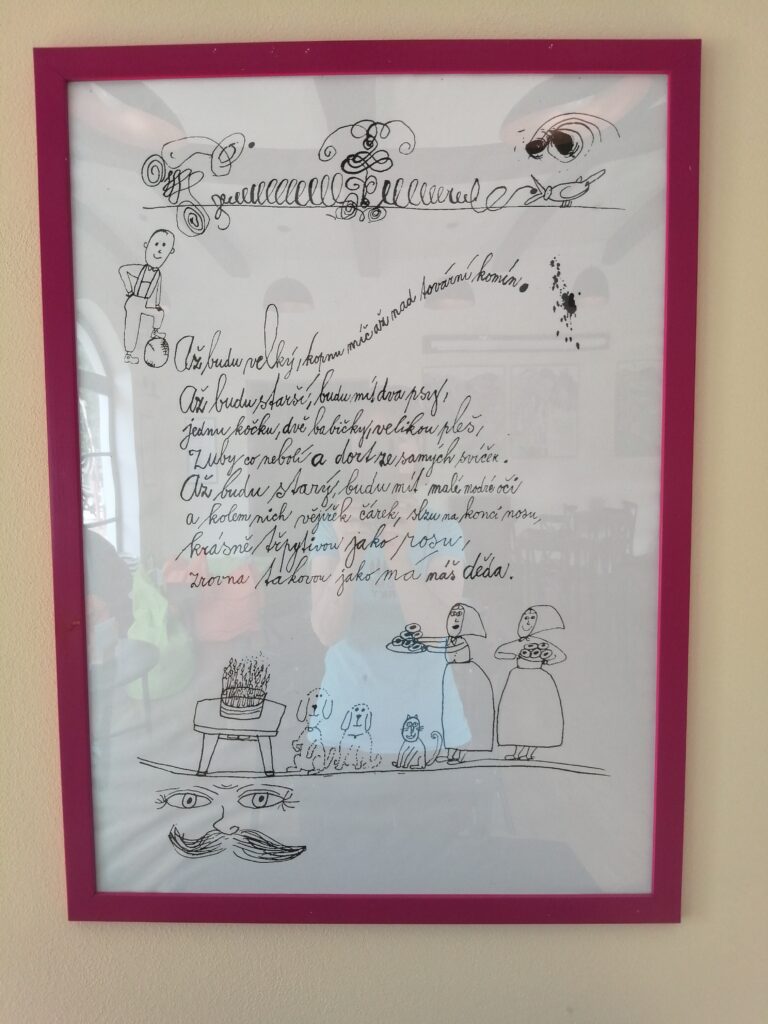 Až budu velký, kopnu míč až nad tovární komín.
Až budu starší, budu mít dva psy,
jednu kočku, dvě babičky, velikou pleš,
zuby co nebolí a dort ze samých svíček.
Až budu starý, budu mít malé modré oči
a kolem nich vějířek čárek, slzu na konci nosu,
krásně třpytivou jako rosu,
zrovna takovou jako má náš děda.